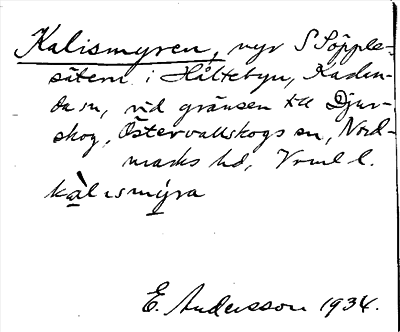 Kalismyren, myr S Söpple-
sätern i Håltebyn, Kaden-
da sn, vid gränsen till Djur-
skog, Östervallskogs sn, Nord-
marks hd, Vrml l.
kàlısmýra
E. Andersson 1934.